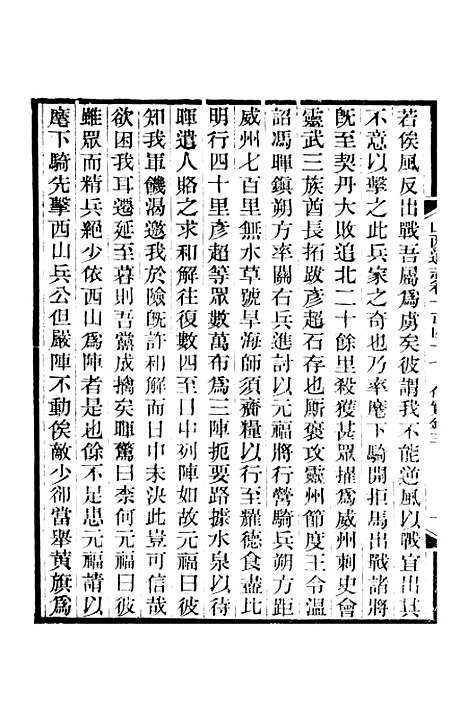 若俟風反出戰吾屬爲虜矣彼謂我不能逆風以戰宜出其
不意以擊之此兵家之奇也乃率麾下騎開拒馬出戰諸將
旣至契丹大敗追北二十餘里殺獲甚眾擢爲威州刺史會
靈武三族酋長拓跋彥超石存也厮褒攻靈州節度王令溫
詔馮暉鎮朔方率關右兵進討以元福將行營騎兵朔方距
威州七百里無水草號旱海師須齎糧以行至耀德食盡比
明行四十里彥超等眾數萬布爲三陣扼要路據水泉以待
暉遣人賂之求和解往復數四至日中列陣如故元福曰彼
知我軍饑渴邀我於險旣許和解而日中未決此豈可信哉
欲困我耳遷延至暮則吾黨成擒矣暉驚曰柰何元福曰彼
雖眾而精兵絕少依西山爲陣者是也餘不足患元福請以
麾下騎先擊西山兵公但嚴陣不動俟敵少卻當舉黃旗爲